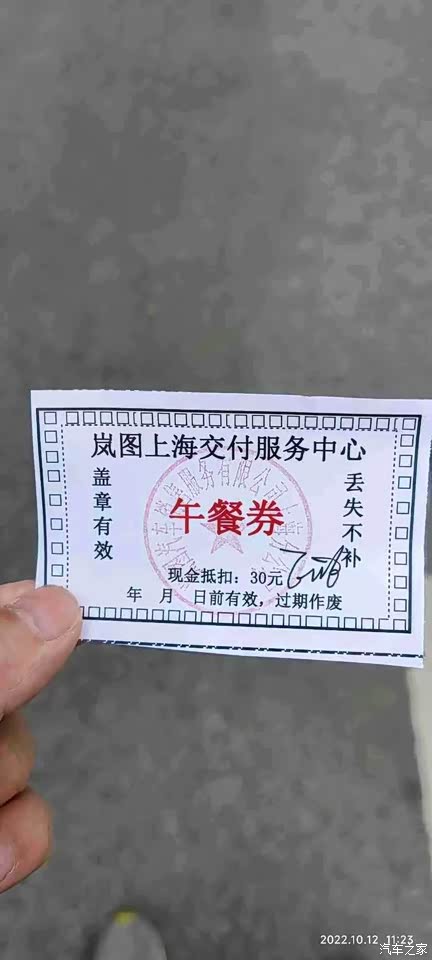 岚图上海交付服务中心
盖章有效
午餐券
丢失不补
现金抵扣：30元
年 月 日前有效，过期作废
2022.10.12 11:23
汽车之家